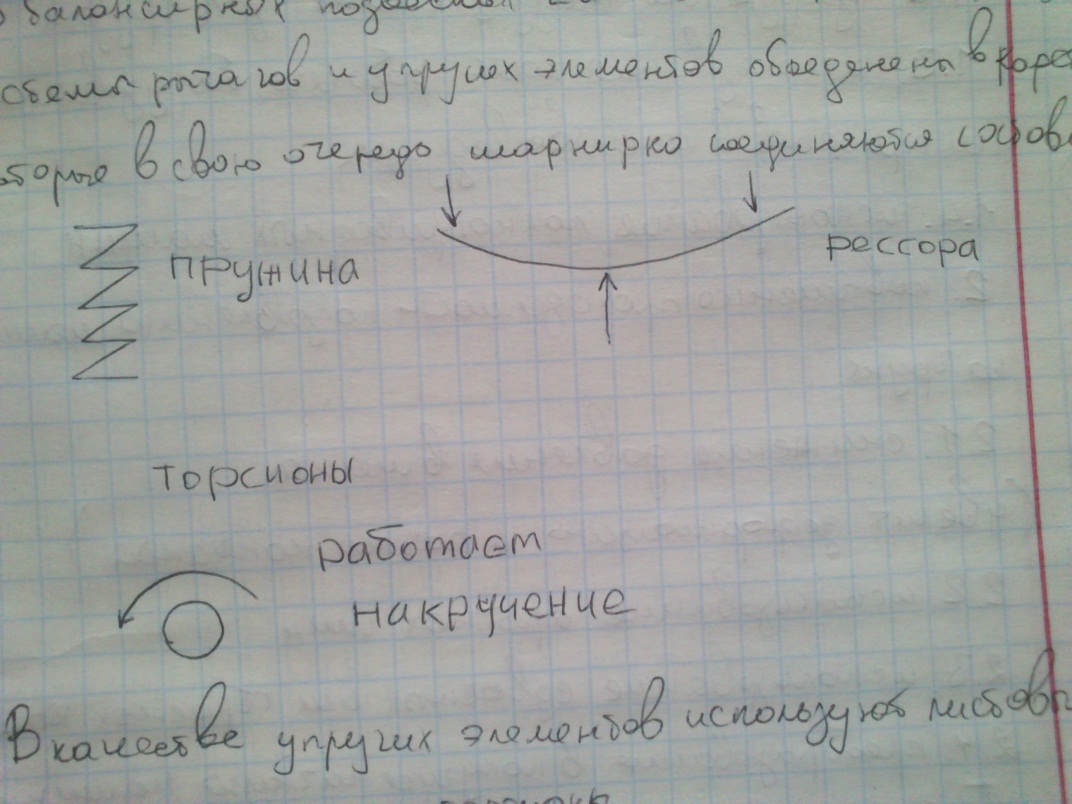 балансирных подвесках
стемы рычагов и упругих элементов обьеденены в каре
оторые в свою очередь шарнирно соединяются с основ
пружина
рессора
торсионы
работает
накручение
В качестве упругих элементов используют листовы